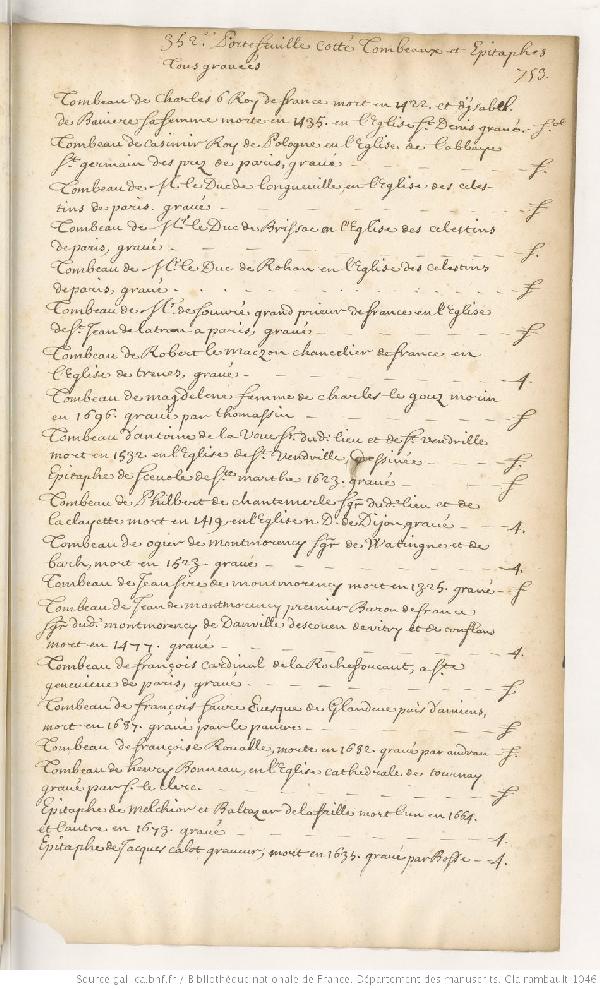 352.e Portefeuille cotté Tombeaux et Epitaphes
Tous gravées
753.
Tombeau de Charles 6 Roy de france mort en 1422. et d'ysabll.
de Baviere sa femme morte en 1435. en l'Eglise St. Denis gravé. – f.
Tombeau de Casimir Roy de Pologne en l'Eglise de l'abbaye
St. germain des prez de paris, gravé – f.
Tombeau de Mr. le Duc de longueville, en l'Eglise des celes-
tins de paris. gravé – f
Tombeau de Mr. le Duc de Brissac en l'Eglise des celestins
de paris, gravé. – f.
Tombeau de Mr. le Duc de Rohan en l'Eglise des celestins
de paris, gravé. – f
Tombeau de Mr. de souvré grand prieur de france en l'Eglise
de St. Jean de latran a paris, gravé – f
Tombeau de Robert le maczon chancelier de france en
l'Eglise de treves, gravé – 4.
Tombeau de magdelene femme de charles le gouz morin
en 1696. gravé par thomassin – f
Tombeau d'antoine de la Voue sr. dud. lieu et de St. Vendrille
mort en 1532. en l'Eglise de St. Vendrille, dessinée – f.
Epitaphe de scevole de Ste. marthe 1623. gravé – f
Tombeau de Philbert de chantemerle sgr. dud. lieu et de
la clayette mort en 1419. en l'Eglise N. D. de Dijon gravé – 4.
Tombeau de ogier de montmorency sgr. de Watingne et de
barh, mort en 1523. gravé – 4.
Tombeau de Jean sire de montmorency mort en 1325. gravé – f
Tombeau de Jean de montmorency premier Baron de france
sgr. dud. montmorency de Danville d'escouen de vitry et de conflans
mort en 1477. gravé – 4.
Tombeau de françois cardinal de la Rochefoucaut, a Ste.
genevieve de paris, gravé – f.
Tombeau de françois faure Evesque de Glandeve puis d'amiens,
mort en 1687. gravé par le pautre – f
Tombeau de françoise Roualle, morte en 1682. gravé par audran – f.
Tombeau de henry Bonneau, en l'Eglise cathedrale de tournay
gravé par s. le clerc. – f
Epitaphe de Melchior et Baltazar de la faille mort l'un en 1664.
et l'autre en 1673. gravé – 4.
Epitaphe de Jacques calot graveur, mort en 1635. gravé par Bosse – 4.
Source gallica.bnf.fr / Bibliothèque nationale de France. Département des manuscrits. Clairambault 1046